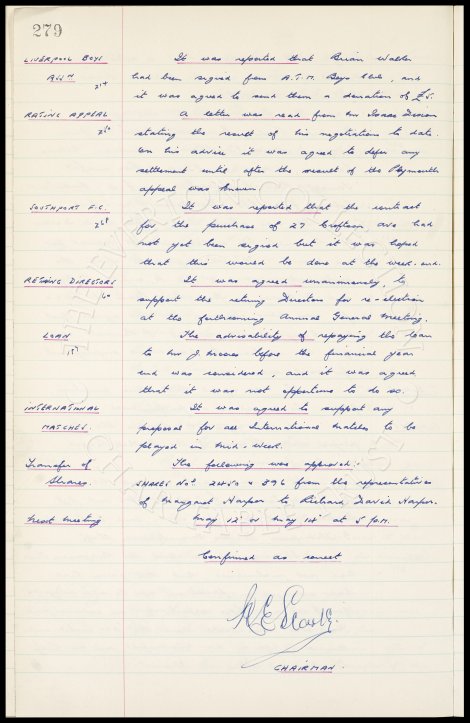 279
LIVERPOOL BOYS It was reported that Brian Walker
ASSN had been signed from A.T.M. Boys Club, and
it was agreed to send them a donation of £5.
RATING APPEAL A letter was read from Mr Isaac Dixon
stating the result of his negotiations to date.
On his advice it was agreed to defer any
settlement until after the result of the Plymouth
appeal was known.
SOUTHPORT F.C. It was reported that the contract
for the purchase of 27 Croftson Ave had
not yet been signed but it was hoped
that this would be done at the week-end.
RETIRING DIRECTORS It was agreed unanimously, to
support the retiring Directors for re-election
at the forthcoming Annual General Meeting.
LOAN The advisability of repaying the loan
to Mr J. Moores before the financial year
end was considered, and it was agreed
that it was not opportune to do so.
INTERNATIONAL It was agreed to support any
MATCHES. proposal for all International matches to be
played in mid-week.
Transfer of The following was approved:-
Shares. SHARES Nos 2450 & 896 from the representatives
of Margaret Harper to Richard David Harper.
Next meeting May 12 or May 14 at 5 p.m.
Confirmed as correct
CHAIRMAN.